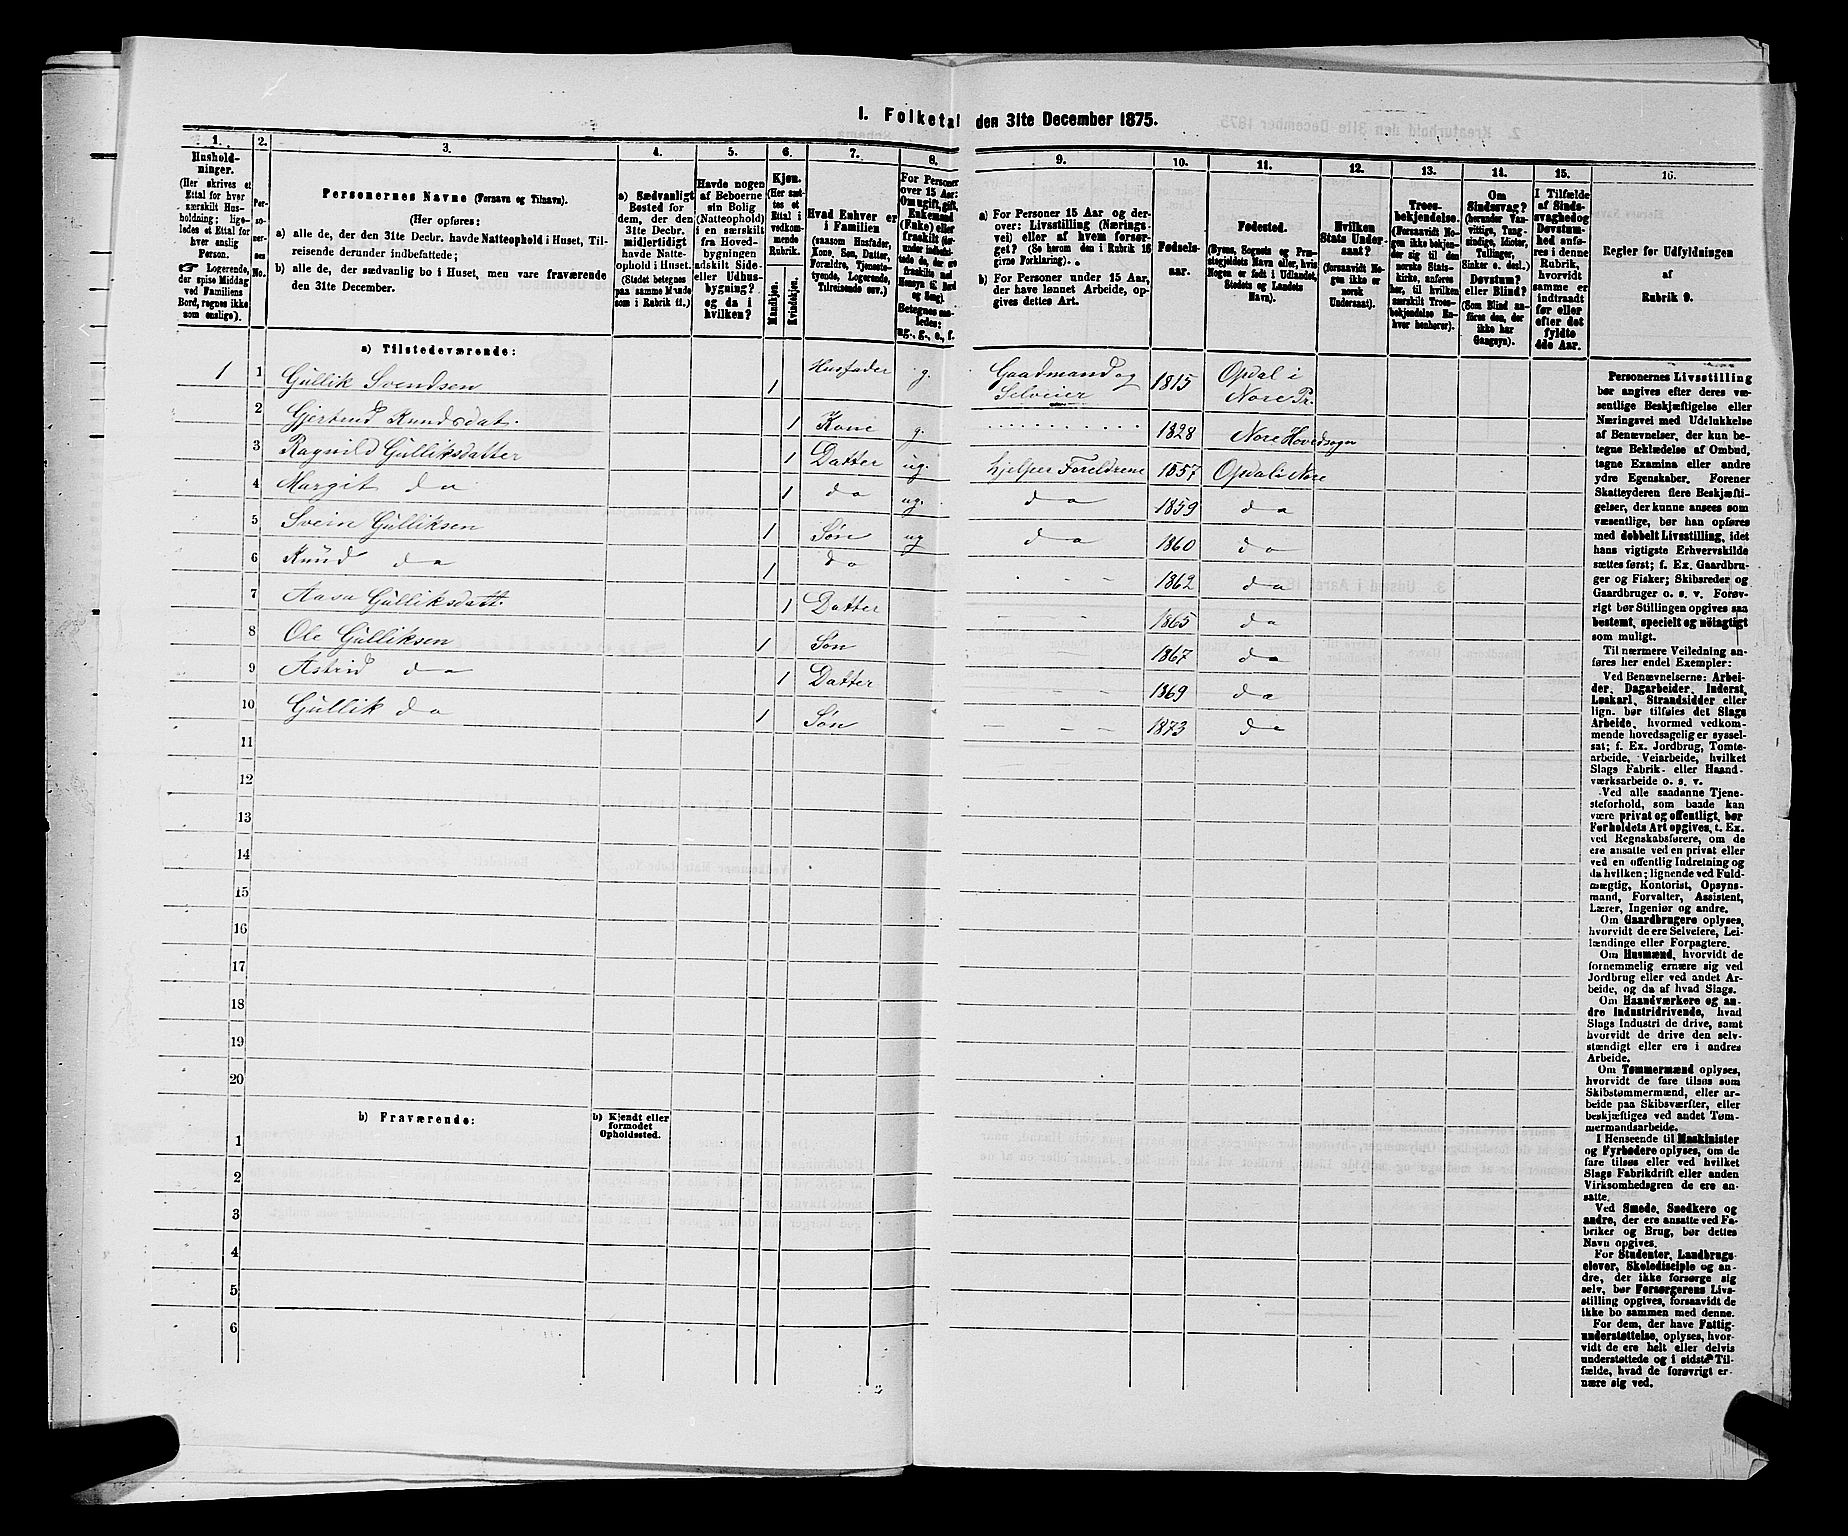 1. Folketal den 31te December 1875.
1. 2. 3. 4. 5. 6. 7. 8. 9. 10. 11. 12. 13. 14. 15. 16.
Hushold-
ninger.
(Her skrives et
Ettal for hver
særskilt Hus-
holdning; lige-
ledes et Ettal
for hver
enslig
Person.
☞ Logerende,
der spise Middag
ved Familiens
Bord, regnes ikke
som enslige).
Per-
so-
ner-
nes
No.
Personernes Navne (Fornavn og Tilnavn).
(Her opføres:
a) alle de, der den 31te Decbr. havde Natteophold i Huset, Til-
reisende derunder indbefattede;
b) alle de, der sædvanlig bo i Huset, men vare fraværende
den 31te December.
a) Sædvanligt
Bosted for
dem, der den
31te Decbr.
midlertidigt
havde Natte-
ophold i Huset.
(Stedet betegnes
paa samme Maade
som i Rubrik 11.)
Havde nogen
af Beboerne
sin Bolig
(Natteophold)
i en særskilt
fra Hoved-
bygningen
adskilt Side-
eller Udhus-
bygning?
og da i
hvilken?
Kjøn.
(Her sæt-
tes et
Ettal i
vedkom-
mende
Rubrik.
Mandkjøn.
Kvindekjøn.
Hvad Enhver er
i Familien
(saasom Husfader,
Kone, Søn, Datter,
Forældre, Tjeneste-
tyende, Logerende,
Tilreisende osv.)
For Personer
over 15 Aar:
Om ugift, gift,
Enkemand
(Enke) eller
fraskilt
Betegnes saa-
ledes:
ug., g., e., f.
a) For Personer 15 Aar og der-
over: Livsstilling (Nærings-
vei) eller af hvem forsør-
get? (Se herom den i Rubrik 16
givne Forklaring).
b) For Personer under 15 Aar,
der have lønnet Arbeide, op-
gives dettes Art.
Fødsels-
aar.
Fødested.
(Byens, Sognets og Præ-
stegjeldets Navn eller, hvis
Nogen er født i Udlandet,
Stedets og Landets
Navn).
Hvilken
Stats Under-
saat?
(forsaavidt No-
gen ikke er
norsk
Undersaat).
Troes-
bekjendelse.
(Forsaavidt No-
gen ikke bekjen-
der sig til den
norske Stats-
kirke, anføres
her, til hvilken
særskilt Troes-
bekjendelse En-
hver henhører).
Om
Sindssvag?
(herunder Van-
vittige, Tung-
sindige, Idioter,
Tullinger,
Sinker o. desl.)
Døvstum?
eller Blind?
(Som Blind an-
føres den, der
ikke har
Gangsyn).
I Tilfælde
af Sinds-
svaghed og
Døvstum-
hed anfø-
res i denne
Rubrik,
hvorvidt
samme er
indtraadt
før eller
efter det
fyldte
4de Aar.
Regler for Udfyldningen
af
Rubrik 9.
a) Tilstedeværende:
1 1 Gullik Svendsen 1 Husfader g. Gaardmand og Selveier 1815 Opdal i Nore Pr.
2 Gjertrud Knudsdat. 1 Kone g. 1828 Nore Hovedsogn
3 Ragnild Gulliksdatter 1 Datter ug. hjelper Foreldrene 1857 Opdal i Nore
4 Margit do 1 do ug. do 1859 do
5 Svein Gulliksen 1 Søn ug do 1860 do
6 Knud do 1 do - - 1862 do
7 Aasa Gulliksdatt. 1 Datter - - 1865 do
8 Ole Gulliksen 1 Søn 1867 do
9 Astrid do 1 Datter - - 1869 do
10 Gullik do 1 Søn - - 1873 do
11
12
13
14
15
16
17
18
19
20
b) Fraværende:
b) Kjendt eller
formodet
Opholdssted.
1
2
3
4
5
6
Personernes Livsstilling
bør angives efter deres væ-
sentlige Beskjæftigelse eller
Næringsvei med Udelukkelse
af Benævnelser, der kun be-
tegne Beklædelse af Ombud,
tagne Examina eller andre
ydre Egenskaber. Forener
Skatteyderen flere Beskjæfti-
gelser, der kunne ansees som
væsentlige, bør han opføres
med dobbelt Livsstilling, idet
hans vigtigste Erhvervskilde
sættes først; f. Ex. Gaardbru-
ger og Fisker; Skibsreder og
Gaardbruger o. s. v. Forøv-
rigt bør Stillingen opgives saa
bestemt, specielt og nøiagtigt
som muligt.
Til nærmere Veiledning an-
føres her endel Exempler:
Ved Benævnelserne: Arbei-
der, Dagarbeider, Inderst,
Løskarl, Strandsidder eller
lign. bør tilføies det Slags
Arbeide, hvormed vedkom-
mende hovedsagelig er syssel-
sat; f. Ex. Jordbrug, Tomte-
arbeide, Veiarbeide, hvilket
Slags Fabrik- eller Haand-
værksarbeide o. s. v.
Ved alle saadanne Tjene-
steforhold, som baade kan
være privat og offentligt, bør
Forholdets Art opgives, t. Ex.
ved Regnskabsførere, om de
ere ansatte ved en privat eller
ved en offentlig Indretning og
da hvilken; lignende ved Fuld-
mægtig, Kontorist, Opsyns-
mand, Forvalter, Assistent,
Lærer, Ingeniør og andre.
Om Gaardbrugere oplyses,
hvorvidt de ere Selveiere, Lei-
lændinge eller Forpagtere.
Om Husmænd, hvorvidt de
fornemmelig ernære sig ved
Jordbrug eller ved andet Ar-
beide, og da af hvad Slags.
Om Haandværkere og an-
dre Industridrivende, hvad
Slags Industri de drive, samt
hvorvidt de drive den selv-
stændigt eller ere i andres
Arbeide.
Om Tømmermænd oplyses,
hvorvidt de fare tilsøs som
Skibstømmermænd, eller ar-
beide paa Skibsværfter, eller
beskjæftiges ved andet Tøm-
mermandsarbeide.
I Henseende til Maskinister
og Fyrbødere oplyses, om de
fare tilsøs eller ved hvilket
Slags Fabrikdrift eller anden
Virksomhedsgren de ere an-
satte.
Ved Smede, Snedkere og
andre, der ere ansatte ved Fa-
briker og Brug, bør dettes
Navn opgives.
For Studenter, Landbrugs-
elever, Skoledisciple og an-
dre, der ikke forsørge sig
selv, bør Forsørgerens Livs-
stilling opgives, forsaavidt de
ikke bo sammen med denne.
For dem, der have Fattig-
understøttelse, oplyses, hvor-
vidt de ere helt eller delvis
understøttede og i sidste Til-
fælde, hvad de forøvrigt er-
nære sig ved.